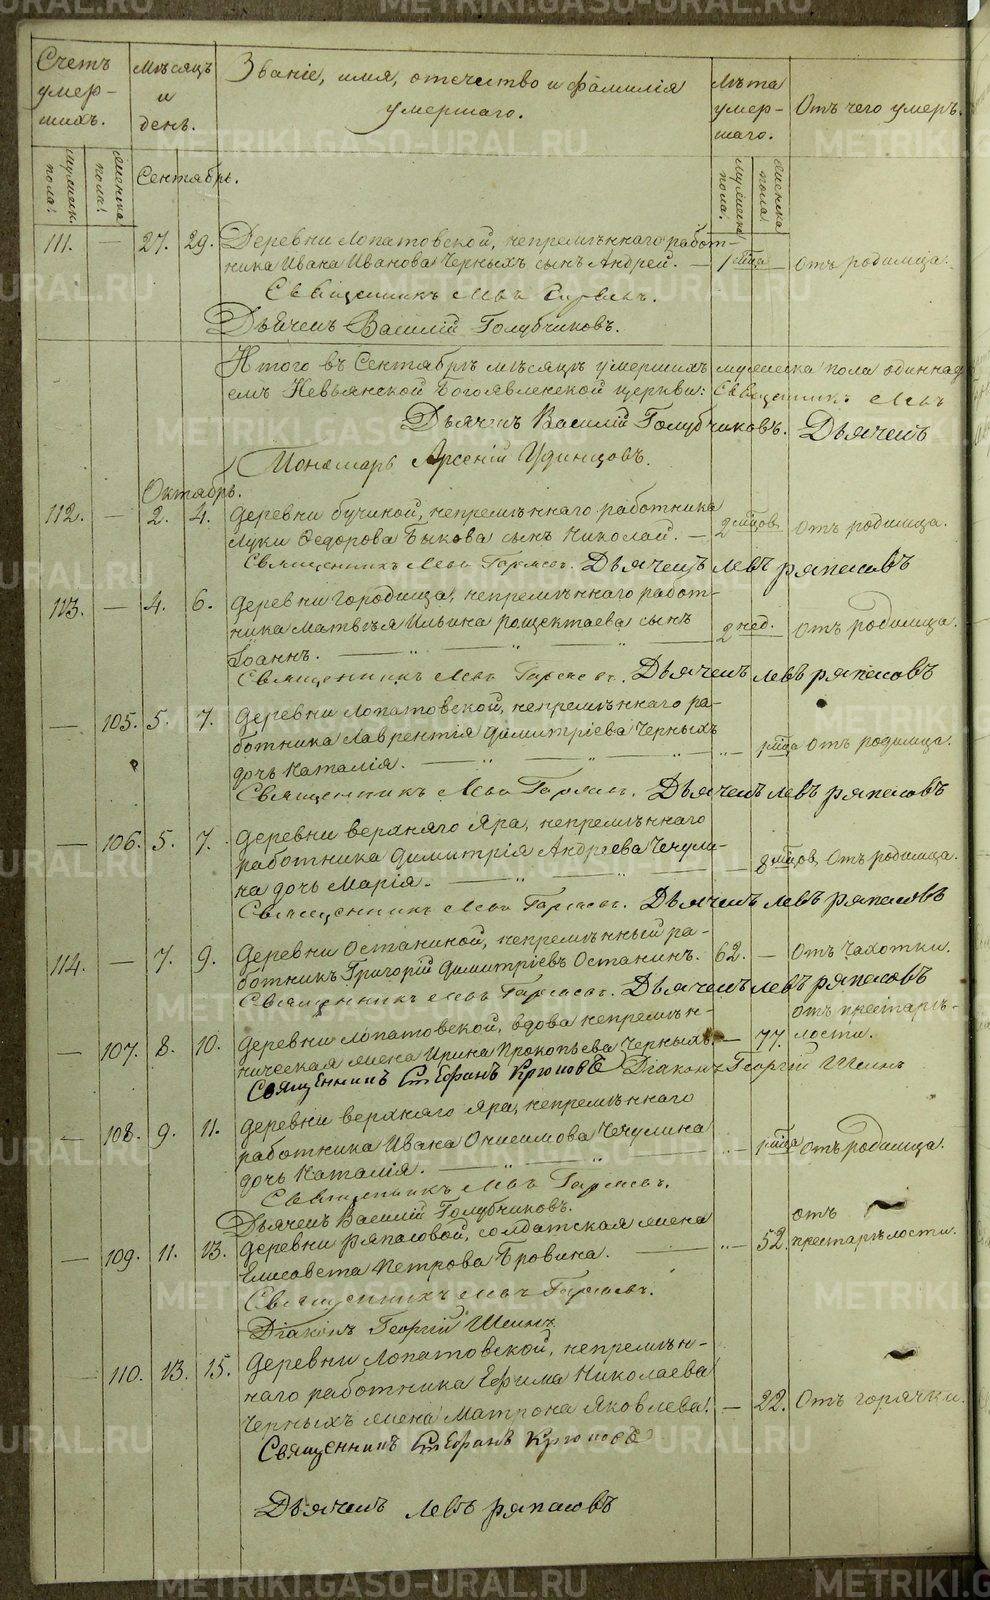 Счетъ умер-шихъ.
Мѣсяцъ и день.
Званіе, имя, отечество и фамилія умершаго.
Лѣта умер-шаго.
Отъ чего умеръ.
мужеск. пола.
женска пола.
Сентябрь.
мужеска пола.
женска пола
111. — 27. 29. Деревни Лопатовской, непремѣннаго работ-
ника Ивана Иванова Черныхъ сынъ Андрей. — 1 мѣца — Отъ родимца.
Священникъ Левъ
Дьячекъ Василій Голубчиковъ.
Итого въ Сентябрѣ мѣсяцѣ умершихъ мужеска пола одиннад
Невьянской Богоявленской церкви: Священникъ Левъ
Дьячекъ Василій Голубчиковъ. Дьячекъ
Пономарь Арсеній Удинцовъ.
Октябрь.
112. — 2. 4. Деревни бучиной, непремѣннаго работника
Луки Ѳедорова Быкова сынъ Николай. — 2 мѣцов. Отъ родимца.
Священникъ Левъ Гаряевъ. Дьячекъ левъ ряпасовъ
113. — 4. 6. Деревни городища, непремѣннаго работ-
ника Матвѣя Ильина рощектаева сынъ 2 нед. Отъ родимца.
Іоаннъ.
Священникъ Левъ Гаряевъ. Дьячекъ левъ ряпасовъ
— 105. 5. 7. Деревни Лопатовской, непремѣннаго ра-
ботника Лаврентія Димитріева Черныхъ
дочь Наталія. — 1 мѣца Отъ родимца.
Священникъ Левъ Гаряевъ. Дьячекъ левъ ряпасовъ
— 106. 5. 7. Деревни верхняго Яра, непремѣннаго
работника Димитрія Андреева Чечули-
на дочь Марія. — 8 мѣцов. Отъ родимца.
Священникъ Левъ Гаряевъ. Дьячекъ левъ ряпасовъ
114. — 7. 9. Деревни Останиной, непремѣнный ра-
ботникъ Григорій Димитріевъ Останинъ. 62. — Отъ Чахотки.
Священникъ Левъ Гаряевъ. Дьячекъ левъ ряпасовъ
— 107. 8. 10. Деревни Лопатовской, вдова непремѣн-
ническая жена Ирина Прокопьева Черныхъ. — 77. отъ престарѣ-
лости.
Священникъ Стефанъ Крюковъ Діаконъ Георгій Шеинъ
— 108. 9. 11. Деревни верхняго Яра, непремѣннаго
работника Ивана Онисимова Чечулина
дочь Наталія. — 1 мѣца Отъ родимца.
Священникъ Левъ Гаряевъ.
Дьячекъ Василій Голубчиковъ.
— 109. 11. 13. Деревни ряпасовой, солдатская жена
Елисавета Петрова Бровина. — 52. отъ
престарѣлости.
Священникъ Левъ Гаряевъ.
Діаконъ Георгій Шеинъ
— 110. 13. 15. Деревни Лопатовской, непремѣн-
наго работника Ефима Николаева
Черныхъ жена Матрона Яковлева. — 22. Отъ горячки.
Священникъ Стефанъ Крюковъ
Дьячекъ левъ ряпасовъ
METRIKI.GASO-URAL.RU